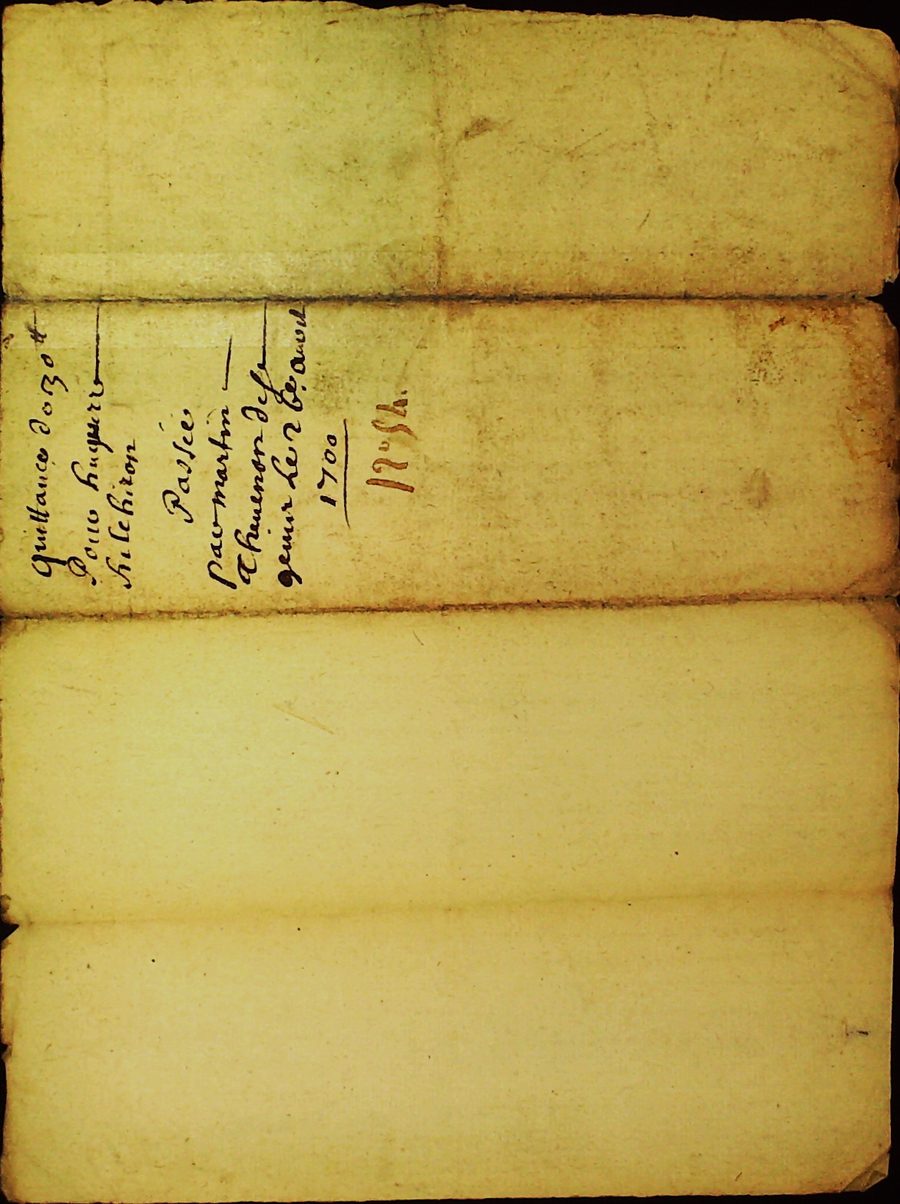 quittance de 130 lt
Pour huguet
hilchiron
Passée
par martin
Thevenon de se
genir Le 26e avril
1700